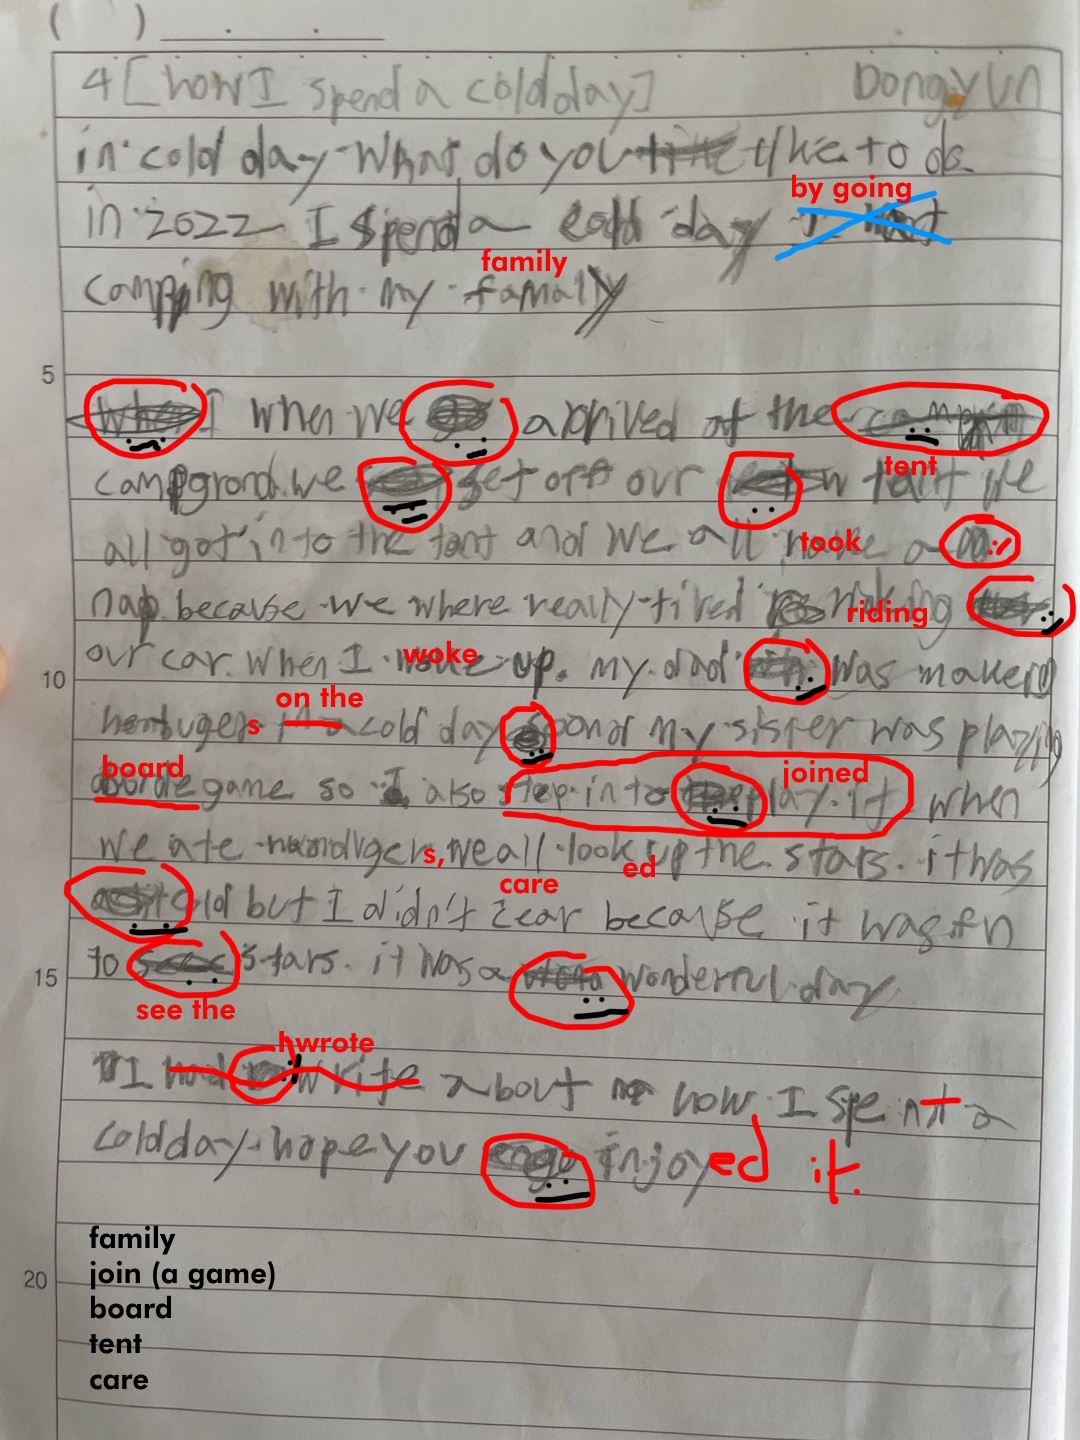 ( )
4 [how I spend a cold day] Dongyun
in cold day what do you like to do.
by going
in 2022 I spend a cold day
family
camping with my famally
5
I when we arrived at the
tent
campgrond. we set off our tant we
all got into the tant and we all took a
nap. because we where really tired riding
woke
our car. when I up. my dad was makeing
10
on the
s cold day my sister was playing
board joined
game so I also step into play it when
we ate s, we all look ed up the stars. it was
care
cold but I didn't because it was fn
to stars. it was a wonderful day
15
see the
wrote
I had write about how I spent a
cold day. hope you injoyed it.
family
join (a game)
20
board
tent
care